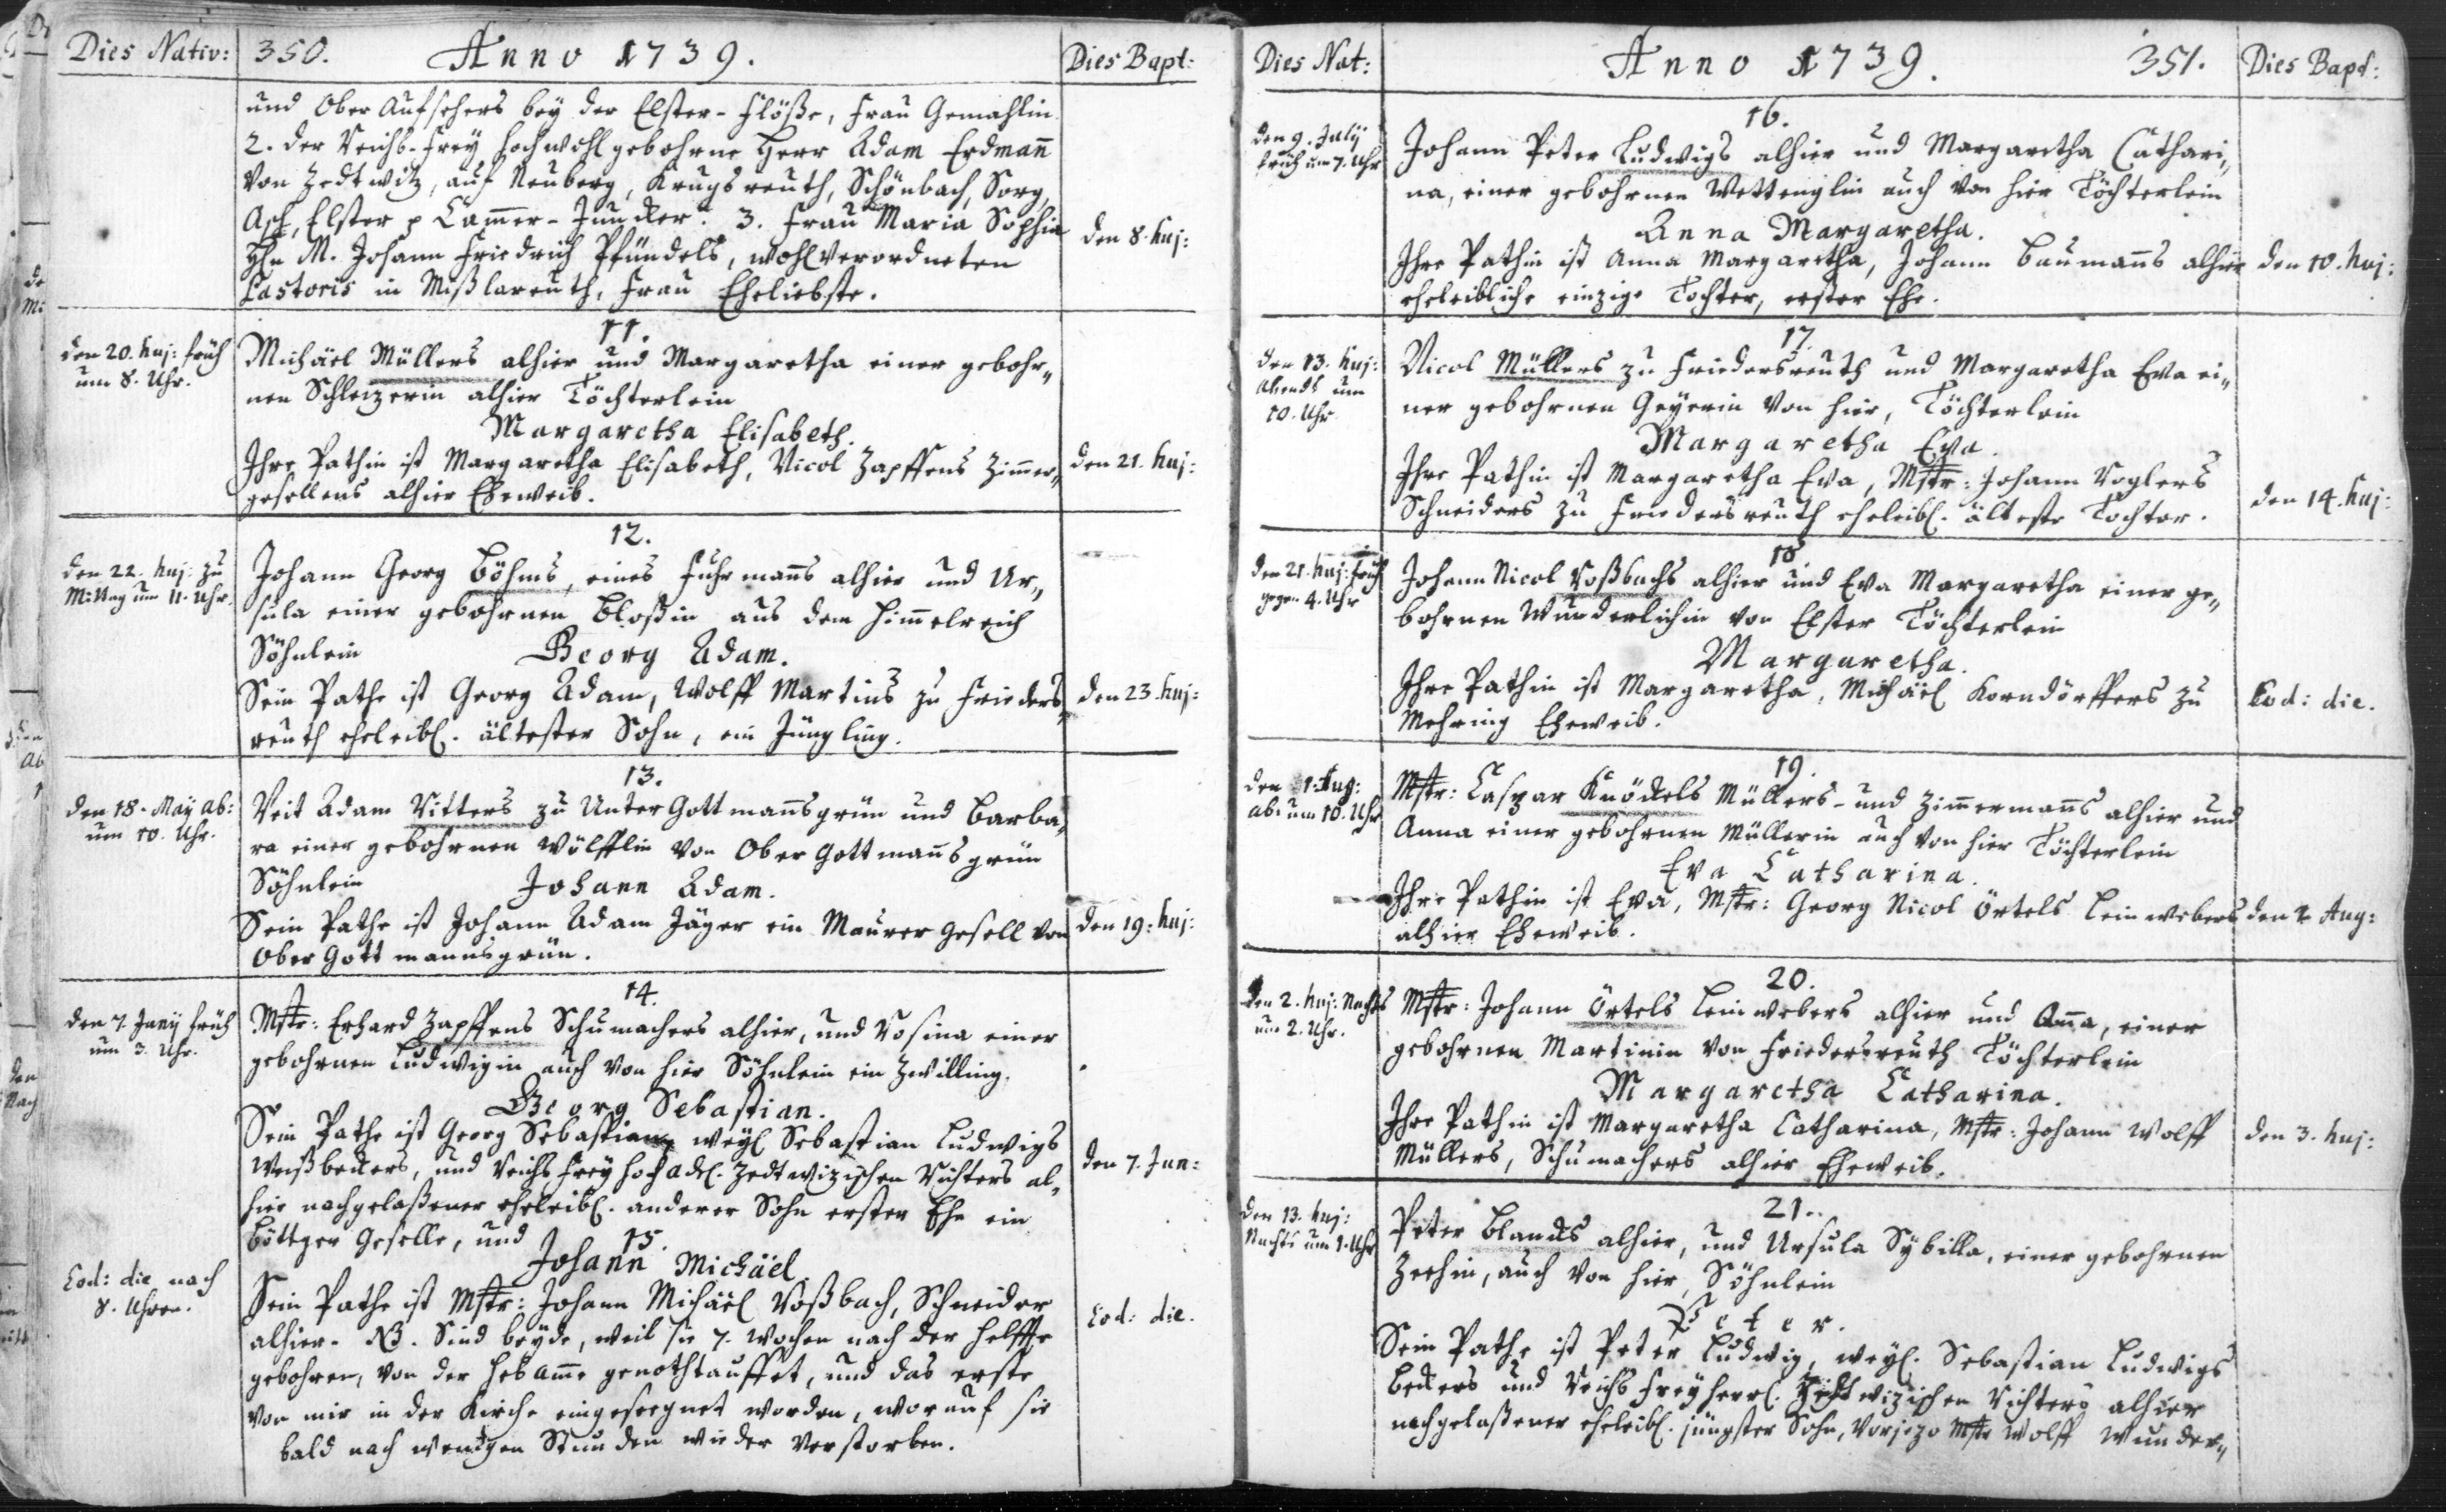 Dies Nativ: 350. Anno 1739. Dies Bapt:
und Ober Aufsehers bey der Elster-Flöße, Frau Gemahlin
2. der Reichs-Frey Hochwohlgebohrne Herr Adam Erdmann
von Zedtwitz, auf Neuberg, Krugsreuth, Schönbach, Sorg,
Asch, Elster p Cammer-Juncker. 3. Frau Maria Sophia
Hn M. Johann Friedrich Pfündels, wohlverordneten
den 8. huj:
Pastoris in Mißlareuth, Frau Eheliebste.
11.
den 20. huj: früh
um 8. Uhr.
Michäel Müllers alhier und Margaretha einer gebohr„
nen Schleizerin alhier Töchterlein
Margaretha Elisabeth.
Ihre Pathin ist Margaretha Elisabeth, Nicol Zapffens Zimer„
gesellens alhier Eheweib.
den 21. huj:
12.
den 22. huj: zu
Mittag um 11. Uhr.
Johann Georg Böhms, eines Fuhrmanns alhier und Ur„
sula einer gebohrnen Bloßin aus dem Himmelreich
Söhnlein Georg Adam.
Sein Pathe ist Georg Adam, Wolff Martins zu Frieders„
reuth eheleibl. ältester Sohn, ein Jüngling.
den 23. huj:
13.
den 18. May ab:
um 10. Uhr.
Veit Adam Ritters zu Unter Gottmannsgrün und Barba„
ra einer gebohrnen Wölfflin von Ober Gottmannsgrün
Söhnlein Johann Adam.
Sein Pathe ist Johann Adam Jäger ein Maurer Gesell von
Ober Gottmannsgrün.
den 19: huj:
14.
den 7. Junij früh
um 3. Uhr.
Mstr: Erhard Zapffens Schumachers alhier, und Rosina einer
gebohrnen Ludwigin auch von hier Söhnlein ein Zwilling.
Georg Sebastian.
Sein Pathe ist Georg Sebastian, weyl. Sebastian Ludwigs
Weißbeckers, und Reichs Frey Hochadel. Zedtwizischen Richters al„
hier nachgelaßener eheleibl. anderer Sohn erster Ehe ein
Böttger Geselle, und
den 7. Jun:
15.
Johann Michäel
Eod: die nach
8. Uhren.
Sein Pathe ist Mstr: Johann Michäel Roßbach, Schneider
alhier. NB. Sind beyde, weil sie 7. Wochen nach der Helffte
gebohren, von der Hebamme genothtauffet, und das erste
von mir in der Kirche eingesegnet worden, worauf sie
bald nach wenigen Stunden wieder verstorben.
Eod: die.
Dies Nat: Anno 1739. 351. Dies Bapt:
16.
den 9. Julij
früh um 7. Uhr
Johann Peter Ludwigs alhier und Margaretha Cathari„
na, einer gebohrnen Wettenglin auch von hier Töchterlein
Anna Margaretha.
Ihre Pathin ist Anna Margaretha, Johann Baumanns alhier
eheleibliche einzige Tochter, erster Ehe.
den 10. huj:
17.
den 13. huj:
Abends um
10. Uhr
Nicol Müllers zu Friedersreuth und Margaretha Eva ei„
ner gebohrnen Geyerin von hier, Töchterlein
Margaretha Eva.
Ihre Pathin ist Margaretha Eva, Mstr: Johann Voglers
Schneiders zu Friedersreuth eheleibl. älteste Tochter.
den 14. huj:
18.
den 21. huj: früh
gegen 4. Uhr
Johann Nicol Roßbachs alhier und Eva Margaretha einer ge„
bohrnen Wunderlichin von Elster Töchterlein
Margaretha.
Ihre Pathin ist Margaretha, Michäel Korndörffers zu
Mehring Eheweib.
Eod: die.
19.
den 1. Aug:
ab. um 10. Uhr
Mstr: Caspar Knöckels Müllers- und Zimmermanns alhier und
Anna einer gebohrnen Müllerin auch von hier Töchterlein
Eva Catharina.
Ihre Pathin ist Eva, Mstr: Georg Nicol Örtels Leinwebers
alhier Eheweib.
den 2 Aug:
20.
den 2. huj: Nachts
um 2. Uhr.
Mstr: Johann Örtels Leinwebers alhier und Anna, einer
gebohrnen Martinin von Friedersreuth Töchterlein
Margaretha Catharina.
Ihre Pathin ist Margaretha Catharina, Mstr: Johann Wolff
Müllers, Schumachers alhier Eheweib.
den 3. huj:
21.
den 13. huj:
Nachts um 1. Uhr
Peter Blancks alhier, und Ursula Sybilla, einer gebohrnen
Zeehin, auch von hier, Söhnlein
Peter.
Sein Pathe ist Peter Ludwig, weyl. Sebastian Ludwigs
Beckers und Reichs Freyherrl. Zedtwizischen Richters alhier
nachgelaßener eheleibl. jüngster Sohn, vorjezo Mstr Wolff Wunder„